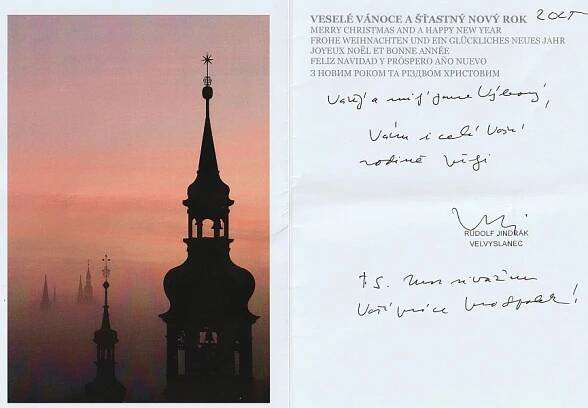 VESELÉ VÁNOCE A ŠŤASTNÝ NOVÝ ROK
MERRY CHRISTMAS AND A HAPPY NEW YEAR
FROHE WEIHNACHTEN UND EIN GLÜCKLICHES NEUES JAHR
JOYEUX NOËL ET BONNE ANNÉE
FELIZ NAVIDAD Y PRÓSPERO AÑO NUEVO
З НОВИМ РОКОМ ТА РІЗДВОМ ХРИСТОВИМ
Vážený a milý pane
Vám i celé Vaší
rodině
RUDOLF JINDRÁK
VELVYSLANEC
P.S. Moc si vážím
Vaší práce